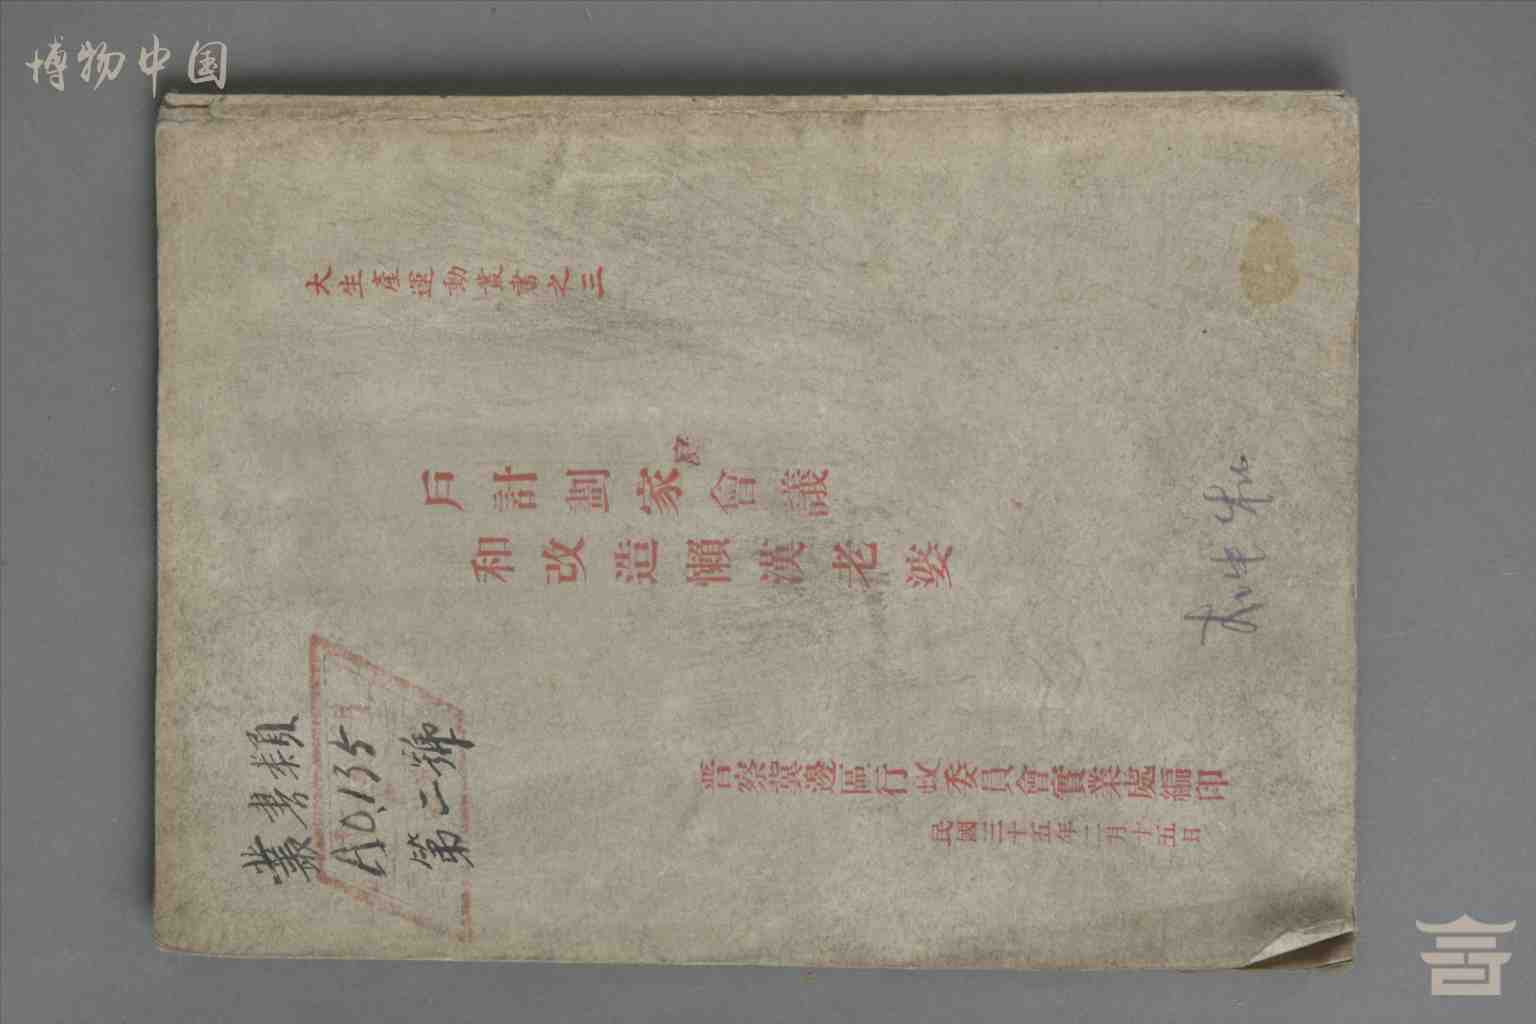 博物中国
大生產運動叢書之三
戶計劃家庭會議
和改造懶漢老婆
叢書類
A0.135
第二號
晋察冀邊區行政委員會實業處編印
民國三十五年二月十五日